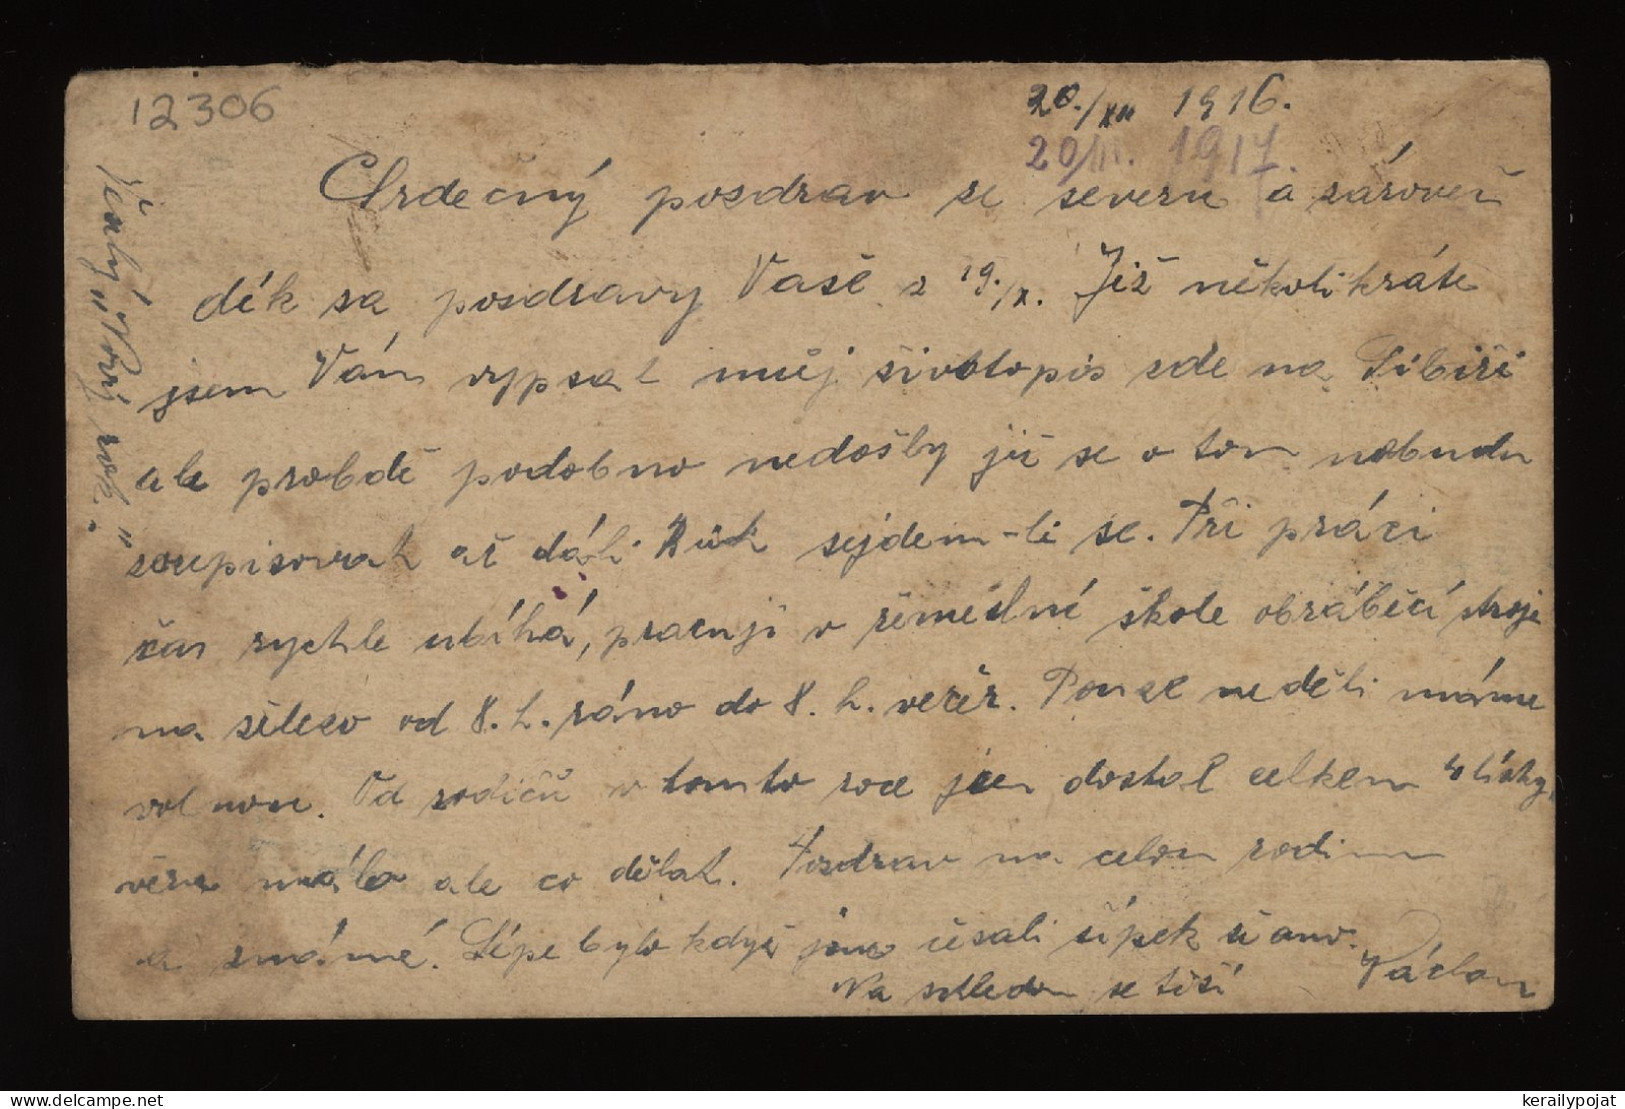 12306
20./XII 1916.
20/II. 1917.
Srdečný pozdrav ze severu a zároveň
dík za pozdravy Vaše z 19./X. Již několikráte
jsem Vám vypsal můj životopis zde na Sibiři
ale podobno nedošly již se o tom nebudu
rozepisovat až dá-li Bůh sejdem-li se. Při práci
čas rychle ubíhá, pracuji v řemeslné škole obráběcí stroje
na železo od 8. h. ráno do 8. h. večer. Pouze neděli máme
volnou. Od rodičů v tomto roce jsem dostal celkem 4 lístky,
věru málo ale co dělat. Pozdrav na celou rodinu
a známé. Lépe bylo když jsme česali šípek
Na shledanou se těší Václav
Veselý „Nový rok."
kerailypojat
delcampe.net